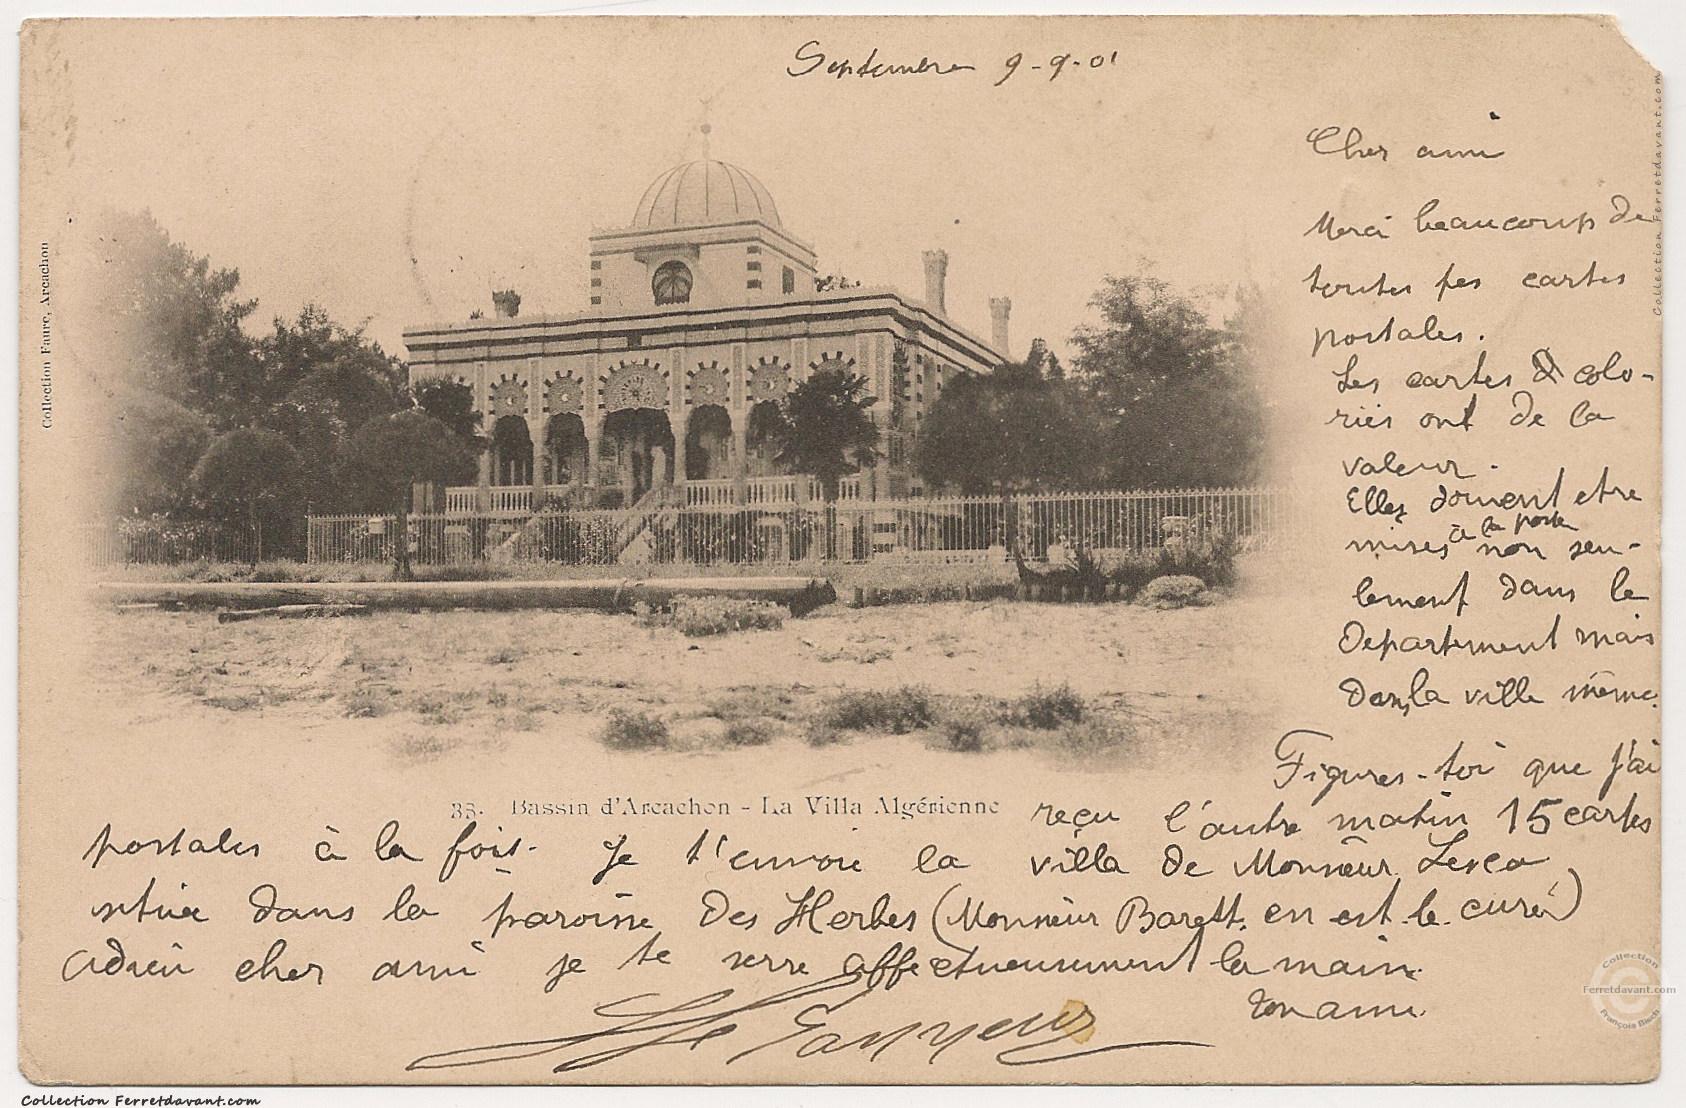 Septembre 9-9-01
Cher ami
Merci beaucoup de
toutes ses cartes
postales.
Les cartes colo-
riés ont de la
valeur.
Elles doivent etre
mises à la poste non seu-
lement dans le
Departement mais
dans la ville même.
Figures-toi que j'ai
reçu l'autre matin 15 cartes
postales à la fois. Je t'envoie la villa de Monsieur Lesca
située dans la paroisse Des Herbes (Monsieur Barett. en est le curé)
adieu cher ami je te serre affectueusement la main.
ton ami.
33. Bassin d'Arcachon - La Villa Algérienne
Collection Faure, Arcachon
Collection Ferretdavant.com
Collection
Ferretdavant.com
François Bisch
Collection Ferretdavant.com